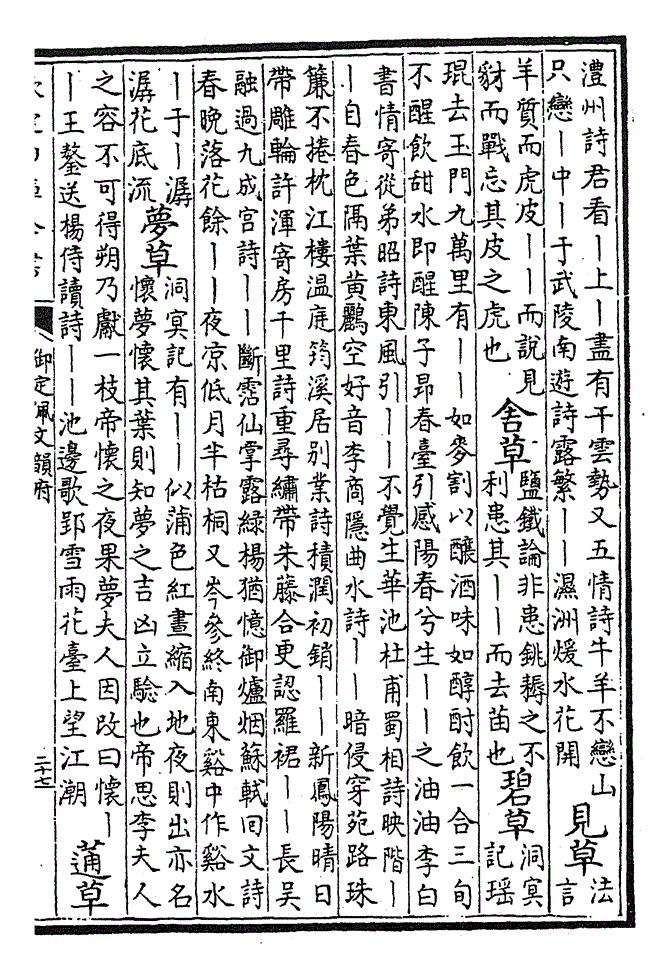 澧州詩君看｜上｜盡有干雲勢又五情詩牛羊不戀山
只戀｜中｜于武陵南遊詩露繁｜｜濕洲煖水花開
見草
法
言
羊質而虎皮｜｜而說見
豺而戰忘其皮之虎也
舍草
鹽鐵論非患銚耨之不
利患其｜｜而去苗也
碧草
洞冥
記瑶
琨去玉門九萬里有｜｜如麥割以釀酒味如醇酎飲一合三旬
不醒飲甜水即醒陳子昂春臺引感陽春兮生｜｜之油油李白
書情寄從弟昭詩東風引｜｜不覺生華池杜甫蜀相詩映階｜
｜自春色隔葉黃鸝空好音李商隱曲水詩｜｜暗侵穿苑路珠
簾不捲枕江樓温庭筠溪居别業詩積潤初銷｜｜新鳳陽晴日
帶雕輪許渾寄房千里詩重尋繡帶朱藤合更認羅裙｜｜長吴
融過九成宫詩｜｜斷霑仙掌露綠楊猶憶御爐烟蘇軾回文詩
春晚落花餘｜｜夜凉低月半枯桐又岑參終南東谿中作谿水
｜于｜潺
潺花底流
夢草
洞冥記有｜｜似蒲色紅晝縮入地夜則出亦名
懷夢懷其葉則知夢之吉凶立驗也帝思李夫人
之容不可得朔乃獻一枝帝懷之夜果夢夫人因改曰懷｜
｜王鏊送楊侍讀詩｜｜池邊歌郢雪雨花臺上望江潮
蓪草
御定佩文韻府
二十七